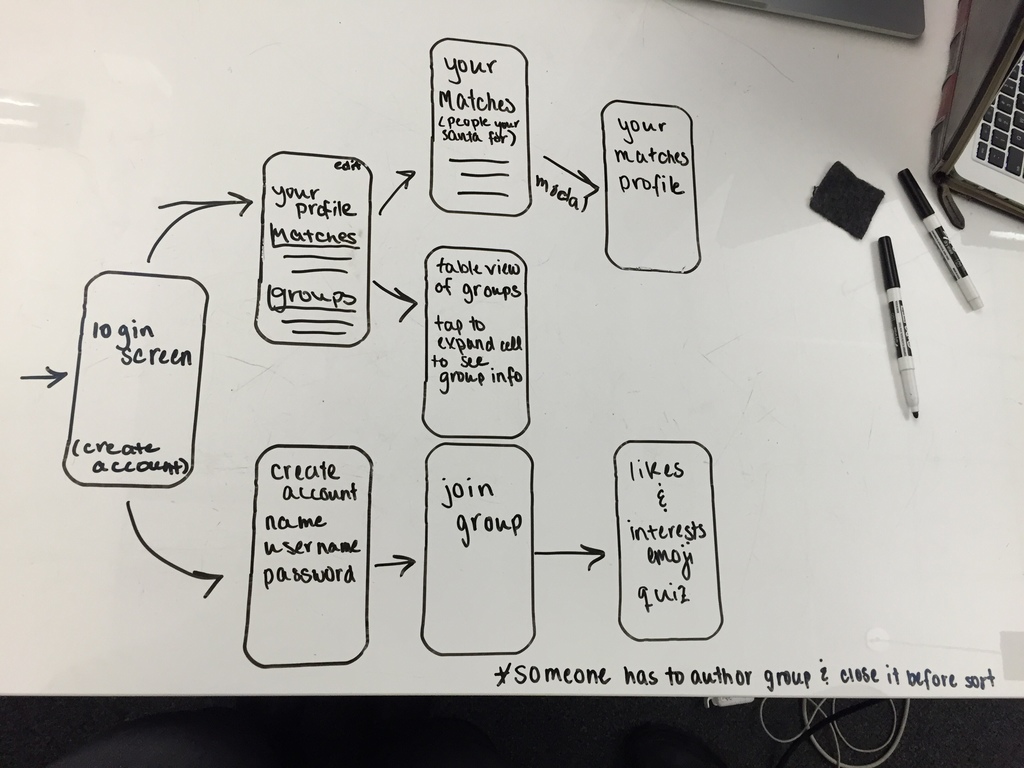 login
screen
(create
account)
edit
your
profile
Matches
groups
your
Matches
(people your
santa for)
modal
your
matches
profile
table view
of groups
tap to
expand cell
to see
group info
create
account
name
username
password
join
group
likes
&
interests
emoji
quiz
*someone has to author group & close it before sort